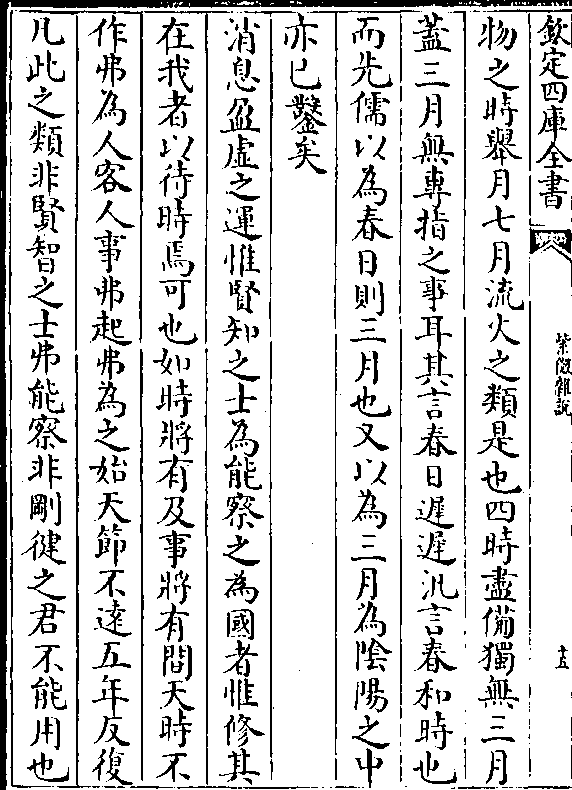 欽定四庫全書
紫微雜說
十五
物之時舉月七月流火之類是也四時盡備獨無三月
蓋三月無專指之事耳其言春日遲遲汎言春和時也
而先儒以為春日則三月也又以為三月為陰陽之中
亦已鑿矣
消息盈虛之運惟賢知之士為能察之為國者惟修其
在我者以待時焉可也如時將有及事將有間天時不
作弗為人客人事弗起弗為之始天節不逺五年反復
凡此之類非賢智之士弗能察非剛健之君不能用也